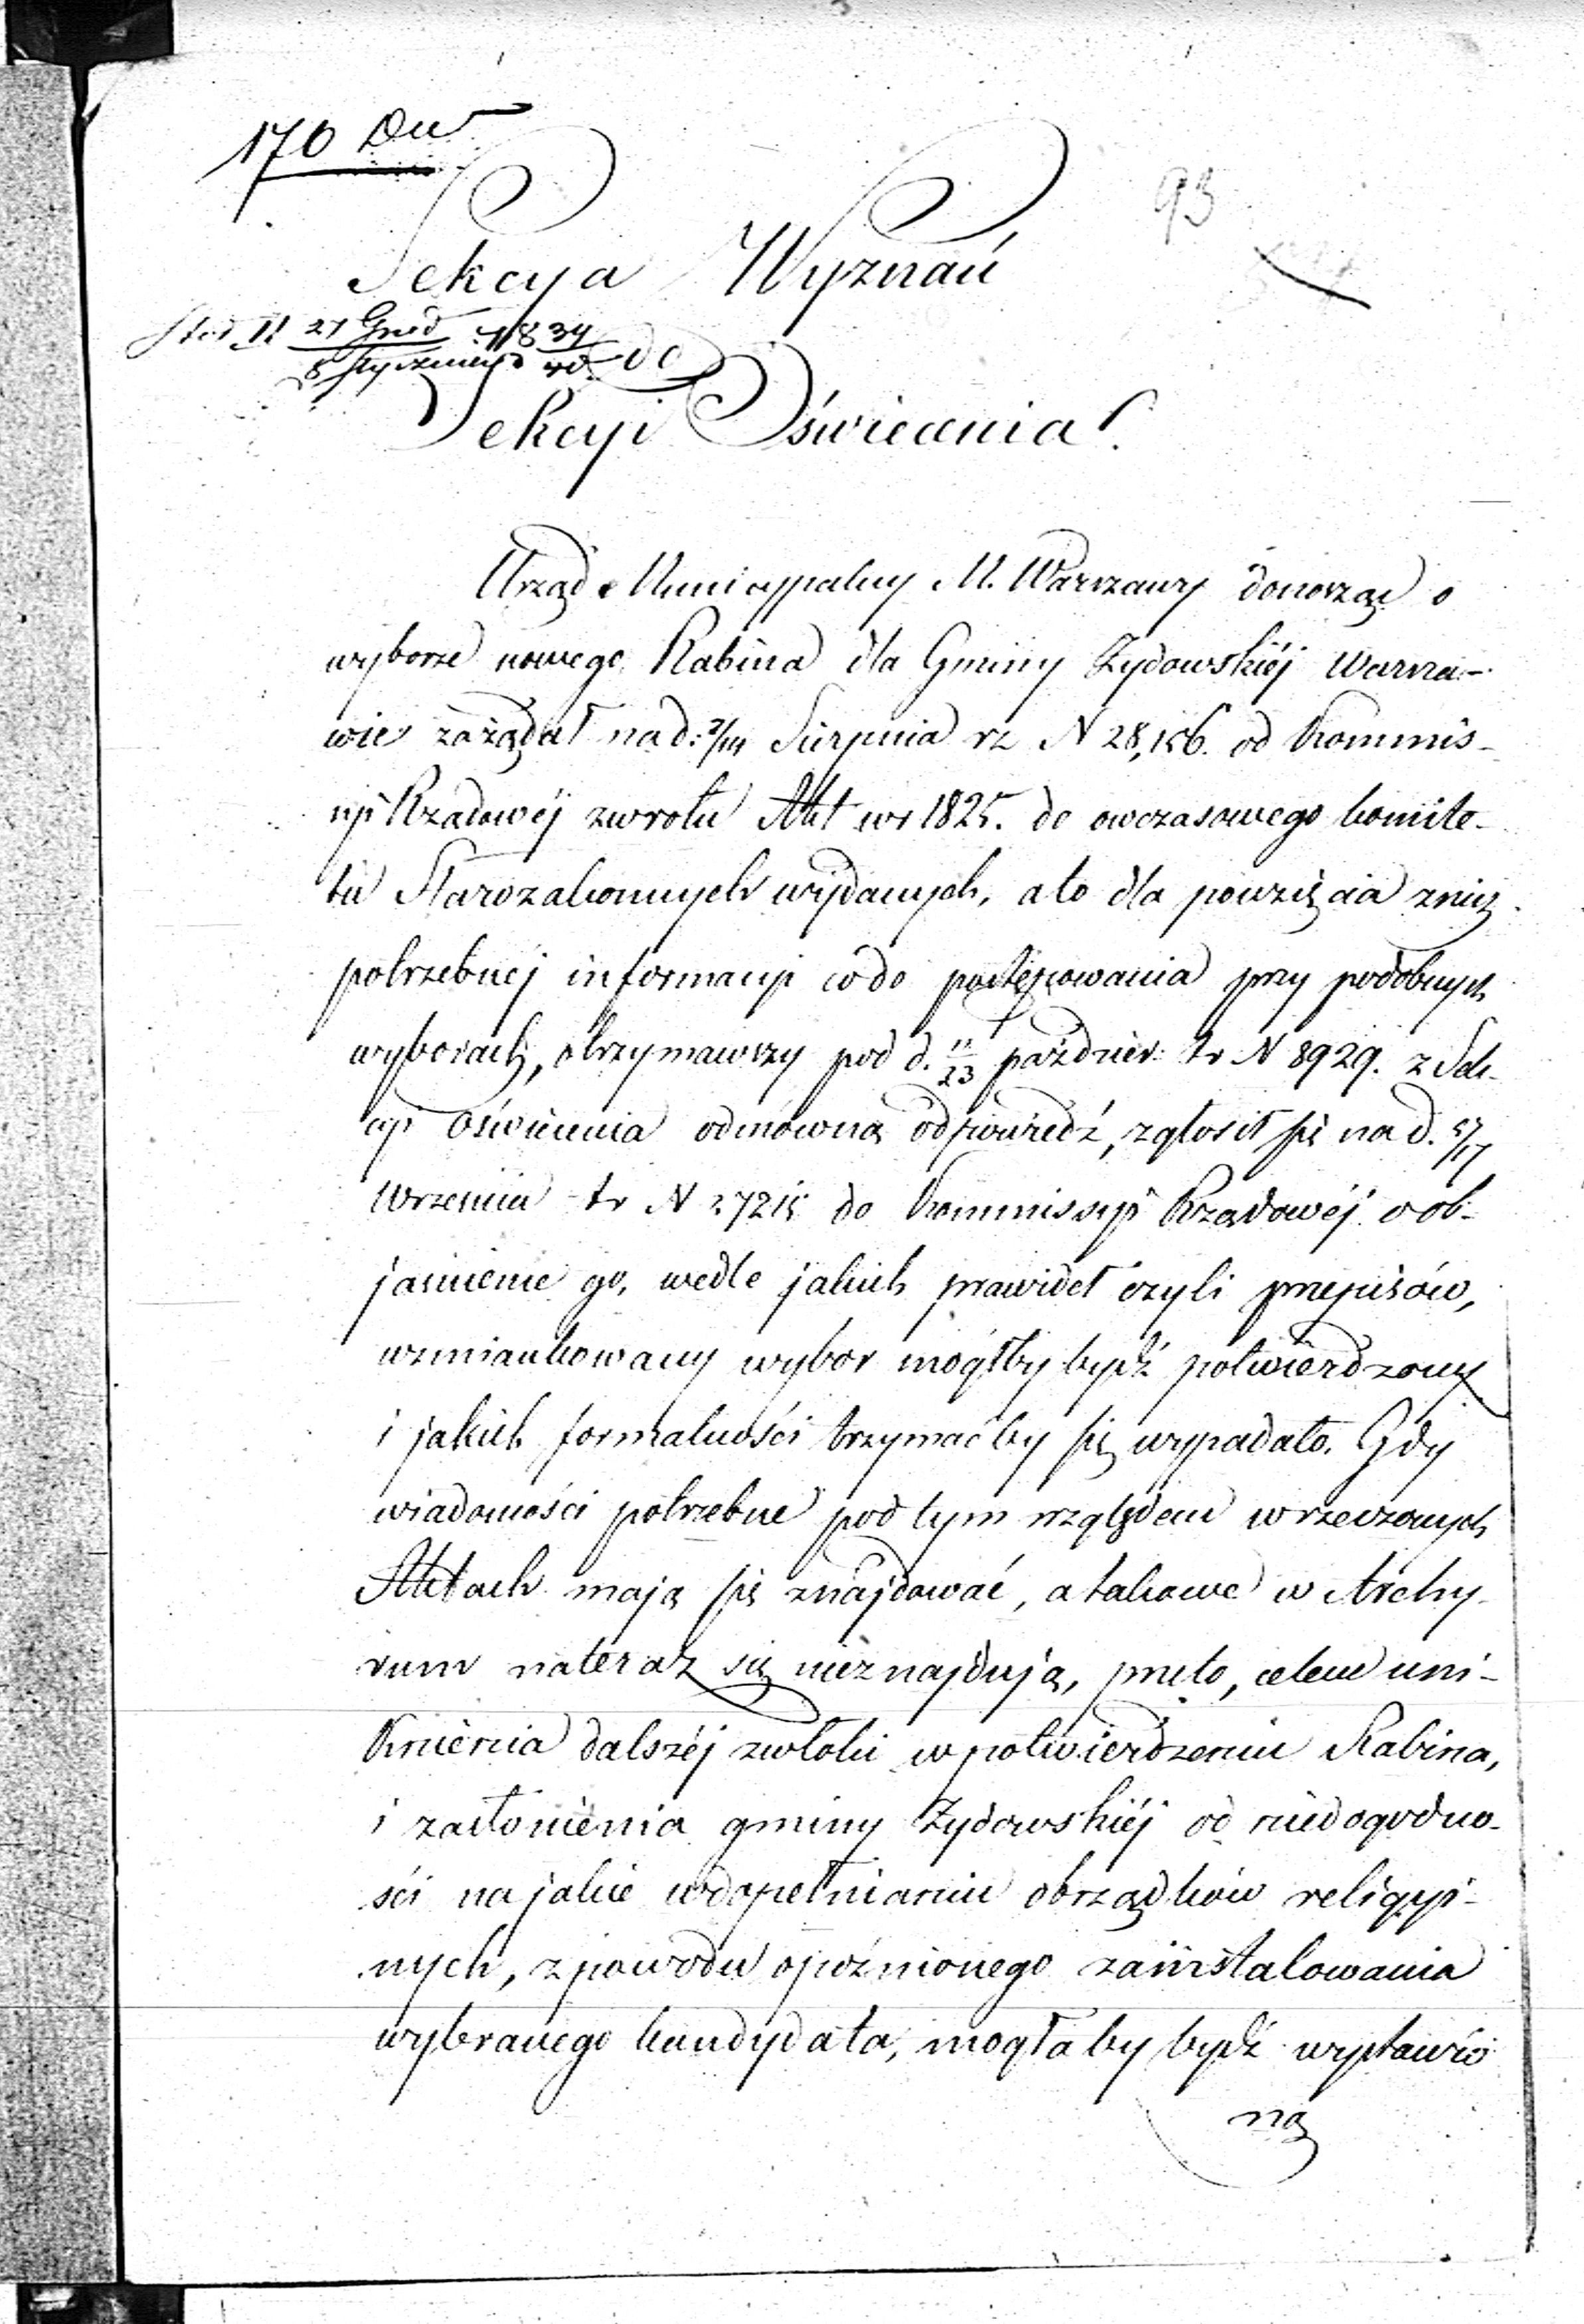 170 Du
93
Sekcya Wyznań
27 Grud 1839
8 Stycznia 40
do
Sekcyi Oświecenia.
Urząd Municypalny M. Warszawy donosząc o
wyborze nowego Rabina dla Gminy Żydowskiéj Warsza-
wie zażądał na d: 2/14 Sierpnia rz N 28,156. od Kommis-
syi Rządowéj zwrotu Akt w r 1825. do owczasowego komite-
tu Starozakonnych wydanych, a to dla powzięcia znich
potrzebnéj informacyi co do postępowania przy podobnych
wyborach, otrzymawszy pod d. 11/23 paździer: tr N 8929. z Sek-
cyi Oświecenia odmówną odpowiedź, zgłosił się na d. 5/17
Września tr N 37215 do Kommissyi Rządowéj o ob-
jasnienie go, wedle jakich prawideł czyli przepisów,
wzmiankowany wybor mógłby bydź potwierdzony
i jakich formalności trzymać by się wypadało. Gdy
wiadomości potrzebne pod tym względem w rzeczonych
Aktach mają się znajdować, a takowe w Archy-
wum na teraz się nieznajdują, przeto, celem uni-
knienia dalszéj zwłoki w potwierdzeniu Rabina,
i zasłonienia gminy Żydowskiéj od niedogodno-
ści na jakie w dopełnianiu obrządków religyi-
nych, z powodu opoźnionego zainstalowania
wybranego kandydata, mogłaby bydź wystawio
ną